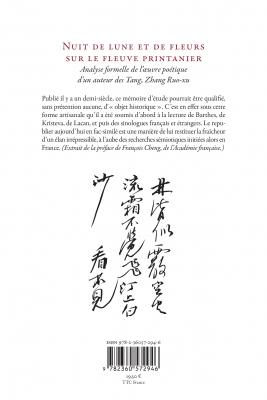 Nuit de lune et de fleurs
sur le fleuve printanier
Analyse formelle de l’œuvre poétique
d’un auteur des Tang, Zhang Ruo-xu
Publié il y a un demi-siècle, ce mémoire d’étude pourrait être qualifié,
sans prétention aucune, d’« objet historique ». C’est en effet sous cette
forme artisanale qu’il a été soumis d’abord à la lecture de Barthes, de
Kristeva, de Lacan, et puis des sinologues français et étrangers. Le repu-
blier aujourd’hui en fac-similé est une manière de lui restituer la fraîcheur
d’un élan irrépressible, à l’aube des recherches sémiotiques initiées alors en
France. (Extrait de la préface de François Cheng, de l’Académie française.)
林皆似霰空裏
流霜不覺飛汀上白
沙看不見
ISBN 978-2-36057-294-6
9 782360 572946
TTC France